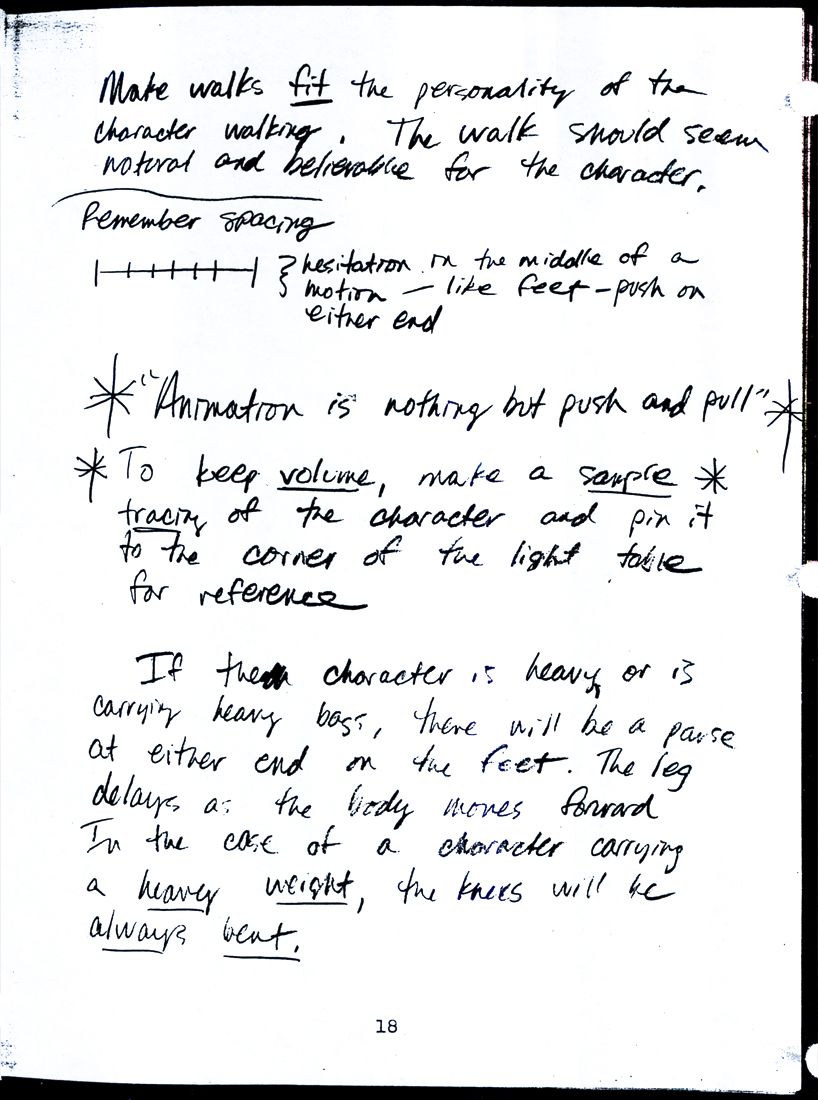 Make walks fit the personality of the
character walking. The walk should seem
natural and believable for the character.
Remember spacing
hesitation in the middle of a
motion — like feet – push on
either end
"Animation is nothing but push and pull"
To keep volume, make a sample
tracing of the character and pin it
to the corner of the light table
for reference
If the character is heavy or is
carrying heavy bags, there will be a pause
at either end on the feet. The leg
delays as the body moves forward
In the case of a character carrying
a heavy weight, the knees will be
always bent.
18